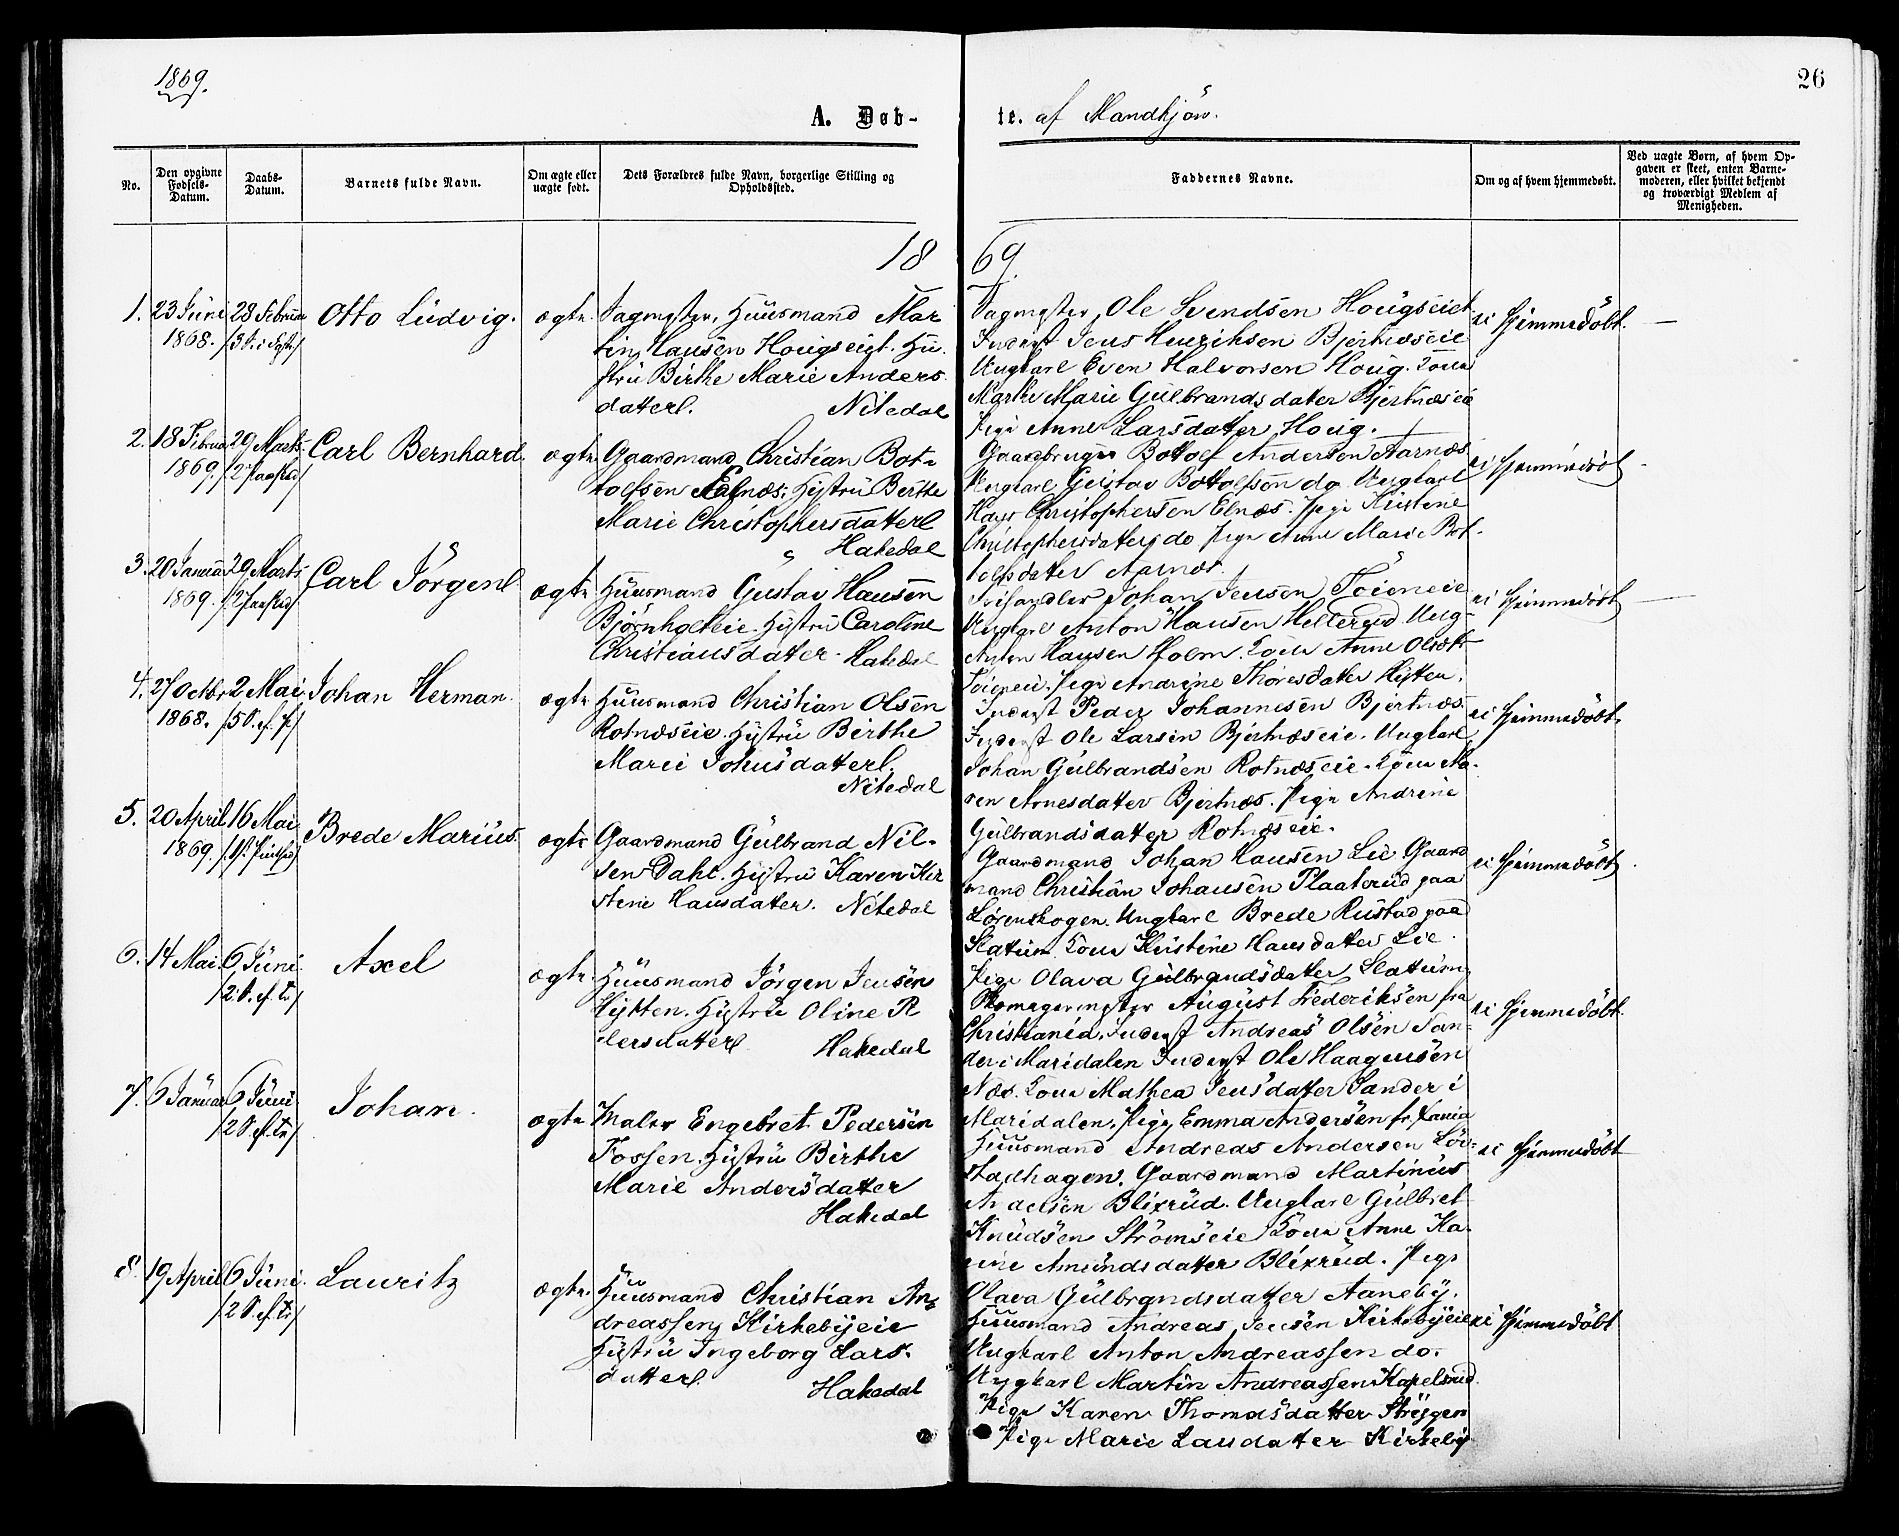 1869.
26
A. Døb-
te. af Mandkjön.
No.
Den opgivne Fødsels-Datum.
Daabs-Datum.
Barnets fulde Navn.
Om ægte eller uægte født.
Dets Forældres fulde Navn, borgerlige Stilling og Opholdssted.
Faddernes Navne.
Om og af hvem hjemmedøbt.
Ved uægte Børn, af hvem Op-
gaven er skeet, enten Barne-
moderen, eller hvilket bekjendt
og troværdigt Medlem af
Menigheden.
18 69.
1. 23 Juni 28 Februar Otto Ludvig. ægte.
1868. /3 S. i Faste/
Huusmand Mar
tin Hansen Hougseiet. Hu
stru Birthe Marie Anders
datter. Nitedal
Ole Svendsen Hougseiet
Inderst Jens Henriksen Bjertnæseie
Ungkarl Even Halvorsen Houg. Kone
Marthe Marie Gulbrandsdatter Bjertnæseie
Pige Anne Larsdatter Houg.
ei hjemmedöbt.
2. 18 Februar 29 Marts Carl Bernhard ægte
1869. /2 Paaskd/
Gaardmand Christian Bot-
tolfsen Elnæs. Hustru Berthe
Marie Christophersdatter
Hakedal
Gaardbruger Bottolf Andersen Aarnæs
Ungkarl Gustav Bottolfsen do Ungkarl
Hans Christophersen Elnæs. Pige Kristine
Christophersdatter do Pige Anne Marie Bot-
tolfsdatter Aarnæs.
ei hjemmedöbt
3. 20 Januar 29 Marts Carl Jörgen ægte
1869. /2 Paaskd/
Huusmand Gustav Hansen
Bjørnholteie. Hustru Caroline
Christiansdatter. Hakedal
Johan Jensen Töieneie
Ungkarl Anton Hansen Hellerud Ung-
Anton Hansen Holm. Kone Anne Olsdtr
Töieneie. Pige Andrine Thoresdatter Hytten.
ei hjemmedöbt
4. 27 Octbr 2 Mai Johan Herman. ægte
1868. /5 S. ef. P./
Huusmand Christian Olsen
Rotnæseie. Hustru Birthe
Marie Johnsdatter.
Nitedal
Inderst Peder Johannesen Bjertnæs.
Inderst Ole Larsen Bjertnæseie. Ungkarl
Johan Gulbrandsen Rotnæseie. Kone Ma-
ren Arnesdatter Bjertnæs. Pige Andrine
Gulbrandsdatter Rotnæseie.
ei hjemmedöbt.
5. 20 April 16 Mai Brede Marius. ægte
1869. /1ste Pintsed/
Gaardmand Gulbrand Nil-
sen Dahl. Hustru Karen Kir
stene Hansdatter. Nitedal
Gaardmand Johan Hansen Lie Gaard
mand Christian Johansen Plaaterud paa
Lørenskogen. Ungkarl Brede Rustad paa
Slatum Kone Kristine Hansdatter Lie.
Pige Olava Gulbrandsdatter Slatum
ei hjemmedöbt
6. 14 Mai. 6 Juni Axel ægte.
/2 S. ef. tr/
Huusmand Jörgen Jensen
Hytten. Hustru Oline P
edersdatter Hakedal
Skomagermester August Frederiksen fra
Christiania. Inderst Andreas Olsen San-
der i Maridalen Inderst Ole Haagensen
Næs. Kone Mathea Jensdatter Sander i
Maridalen. Pige Emma Andersen fr. Xania
ei hjemmedöbt
7. 6 Januar 6 Juni Johan. ægte
/2 S. ef. tr/
Maler Engebret Pedersen
Fossen. Hustru Birthe
Marie Andersdatter
Hakedal
Huusmand Andreas Andersen Löv-
stadhagen. Gaardmand Martinus
Blixrud. Ungkarl Gulbret
Knudsen Strömseie Kone Anne Ka-
rine Amundsdatter Blixrud. Pige
Olava Gulbrandsdatter Aaneby.
ei hjemmedöbt
8. 19 April 6 Juni. Lauritz ægte.
/2 S. ef. tr/
Huusmand Christian An-
dreassen Kirkebyeie
Hustru Ingeborg Lars-
datter. Hakedal
Huusmand Andreas Jensen Kirkebyeie
Ungkarl Anton Andreassen do.
Ungkarl Martin Andreassen Kapelsrud.
Pige Karen Thomasdatter Strygen
Pige Marie Lausdatter Kirkeby
ei hjemmedöbt